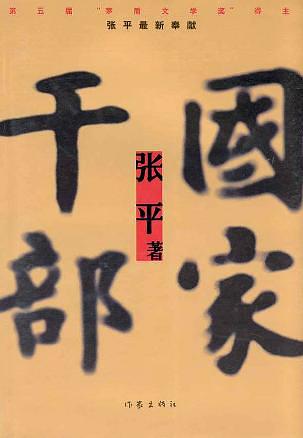 第五届"茅盾文学奖"得主
张平最新奉献
國家
干部
张平著
作家出版社